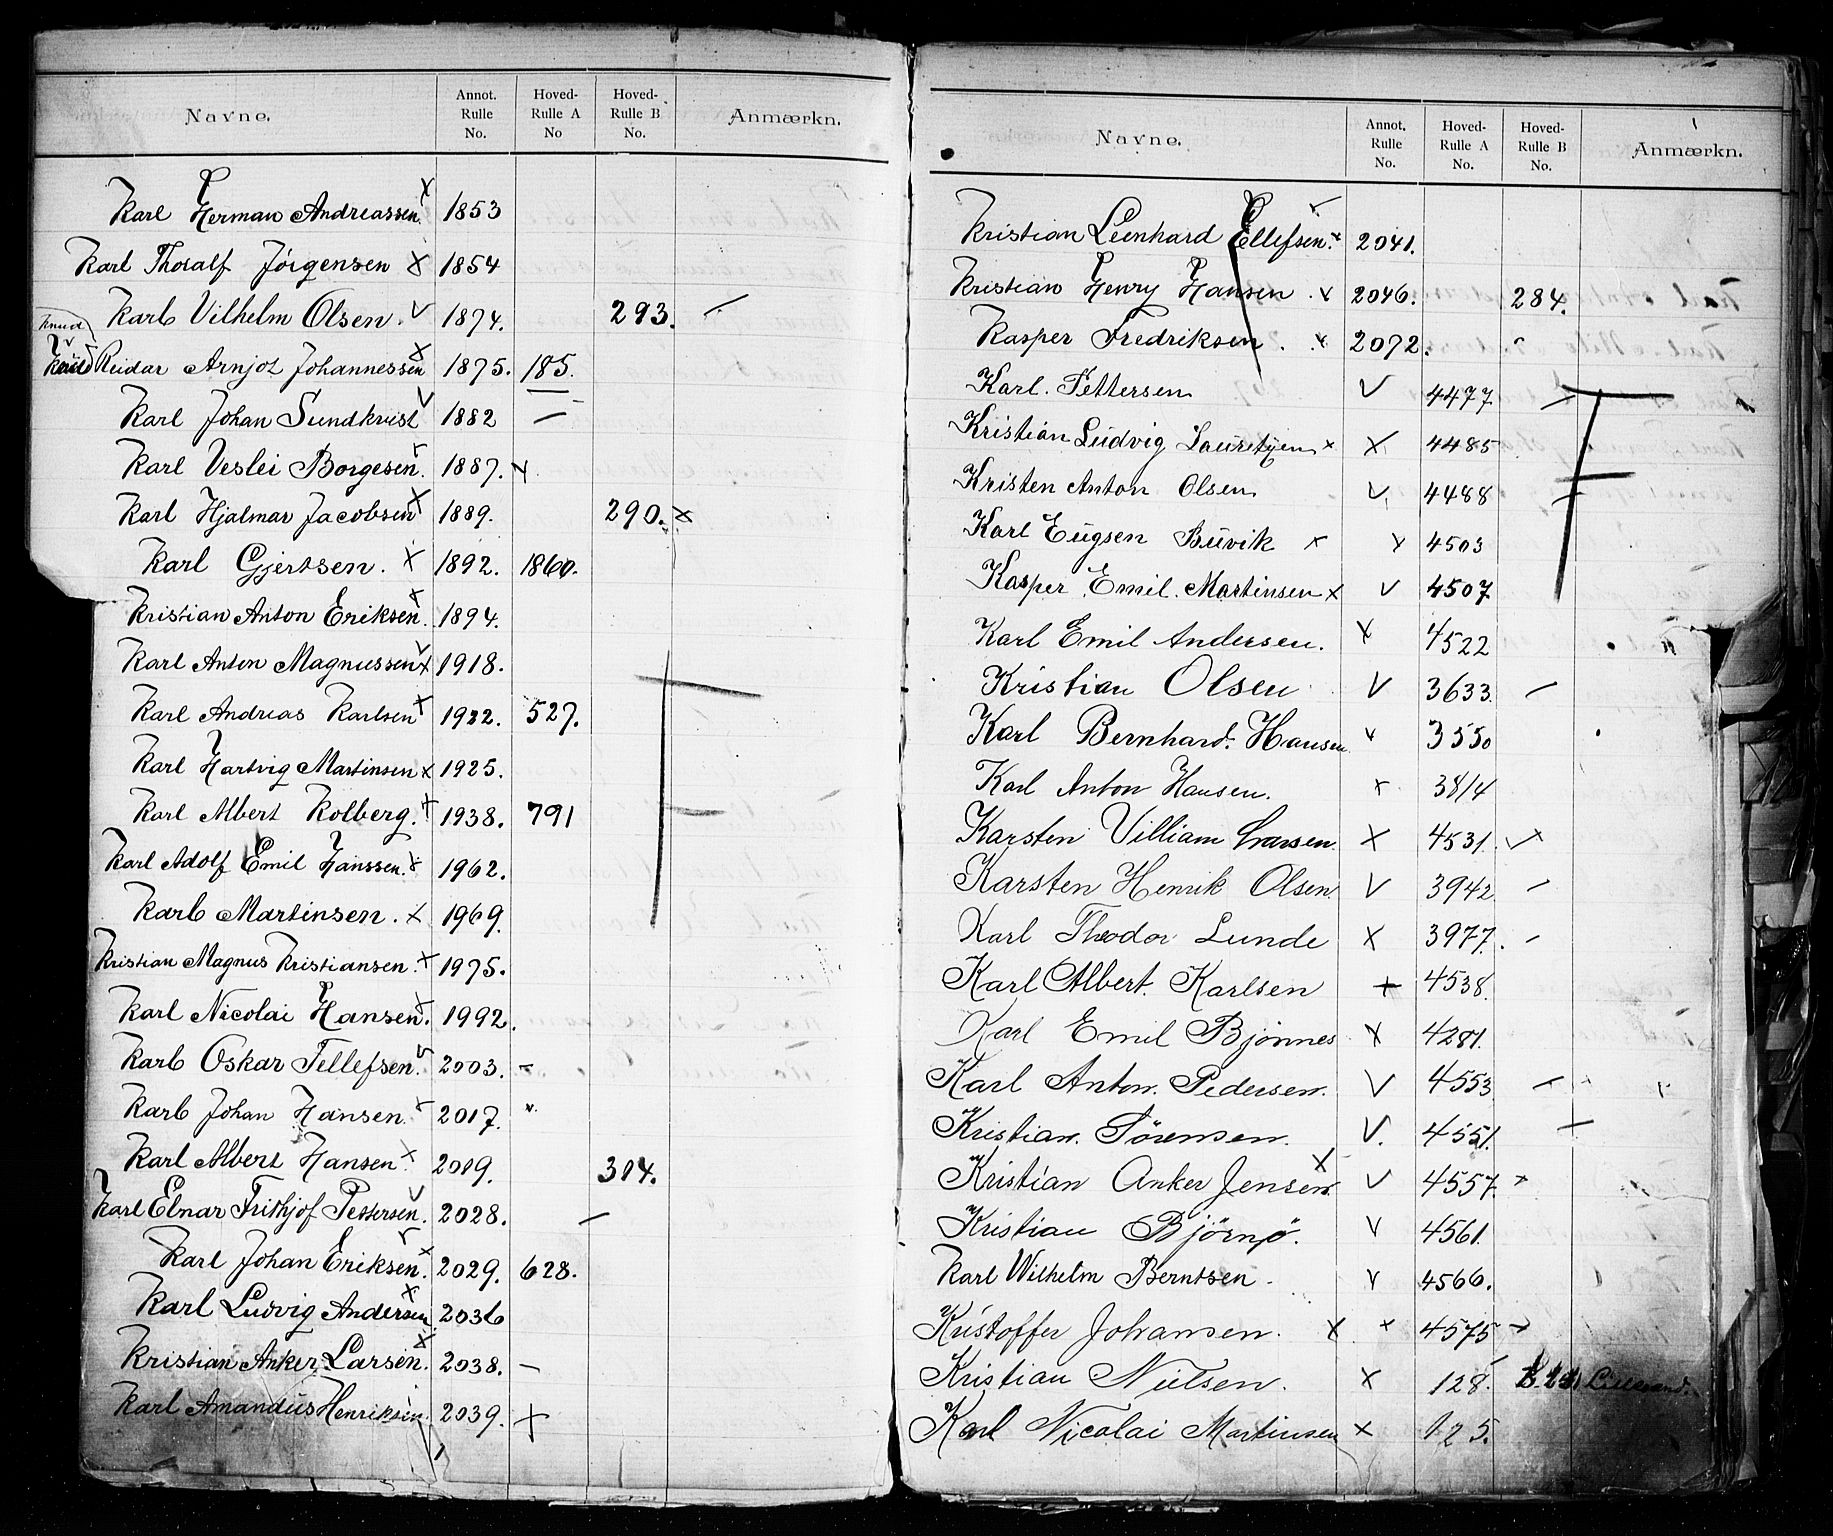 Navne. Annot. Rulle No. Hoved-Rulle A No Hoved-Rulle B No. Anmærkn.
Karl Herman Andreassen 1853
Karl Thoralf Jörgensen 1854
Karl Vilhelm Olsen. 1874. 293.
Knud
Knud Reidar Arnjot Johannessen 1875. 185.
Karl Johan Sundkvist 1882
Karl Veslei Borgesen. 1887.
Karl Hjalmar Jacobsen 1889. 290.
Karl Gjertsen. 1892. 1860.
Kristian Anton Eriksen. 1894.
Karl Anton Magnussen 1918.
Karl Andreas Karlsen 1922. 527.
Karl Hartvig Martinsen 1925.
Karl Albert Kolberg. 1938. 791
Karl Adolf Emil Hanssen. 1962.
Karl Martinsen. 1969.
Kristian Magnus Kristiansen. 1975.
Karl Nicolai Hansen. 1992.
Karl Oskar Tellefsen. 2003.
Karl Johan Hansen. 2017.
Karl Albert Hansen 2019. 304.
Karl Elnar Frithjof Pettersen. 2028.
Karl Johan Eriksen. 2029. 628.
Karl Ludvig Andersen 2036
Kristian Anker Larsen. 2038.
Karl Amandus Henriksen. 2039.
Navne. Annot. Rulle No. Hoved-Rulle A No. Hoved-Rulle B No. Anmærkn.
Kristian Leenhard Ellefsen. 2041.
Kristian Henry Hansen 2046. 284.
Kasper Fredriksen. 2072.
Karl. Pettersen 4477
Kristian Ludvig Lauretzen 4485
Kristen Anton Olsen 4488
Karl Eugsen Buvik 4503
Kasper Emil. Martinsen 4507
Karl Emil Andersen. 4522
Kristian Olsen 3633.
Karl Bernhard. Hansen 3550
Karl Anton Hansen. 3814
Karsten Villiam Larsen. 4531.
Karsten Henrik Olsen 3942
Karl Theodor Lunde 3977.
Karl Albert. Karlsen 4538.
Karl Emil Bjønnes 4281.
Karl Anton. Pedersen. 4553
Kristian. Sørensen. 4551.
Kristian Anker Jensen. 4557.
Kristian Bjørnø. 4561.
Karl Wilhelm Berntsen. 4566.
Kristoffer Johansen. 4575
Kristian Nielsen. 128. Lillesand.
Karl Nicolai Martinsen 125.